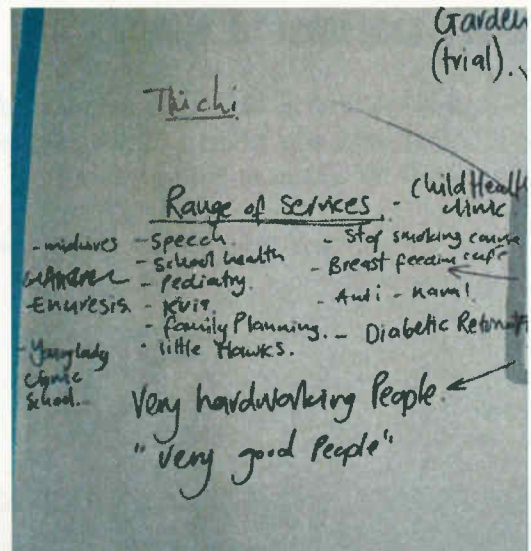 Garden
(trial).
Thichi
Range of Services
- Child Health
clinic
- midwives
- Enuresis
- Young lady
clinic
School.
- Speech
- School health
- Pediatry
- family Planning.
- little Hawks.
- Stop smoking course
- Breast feeding cafe
- Anti - natal
- Diabetic
Very hardworking People
"very good People"